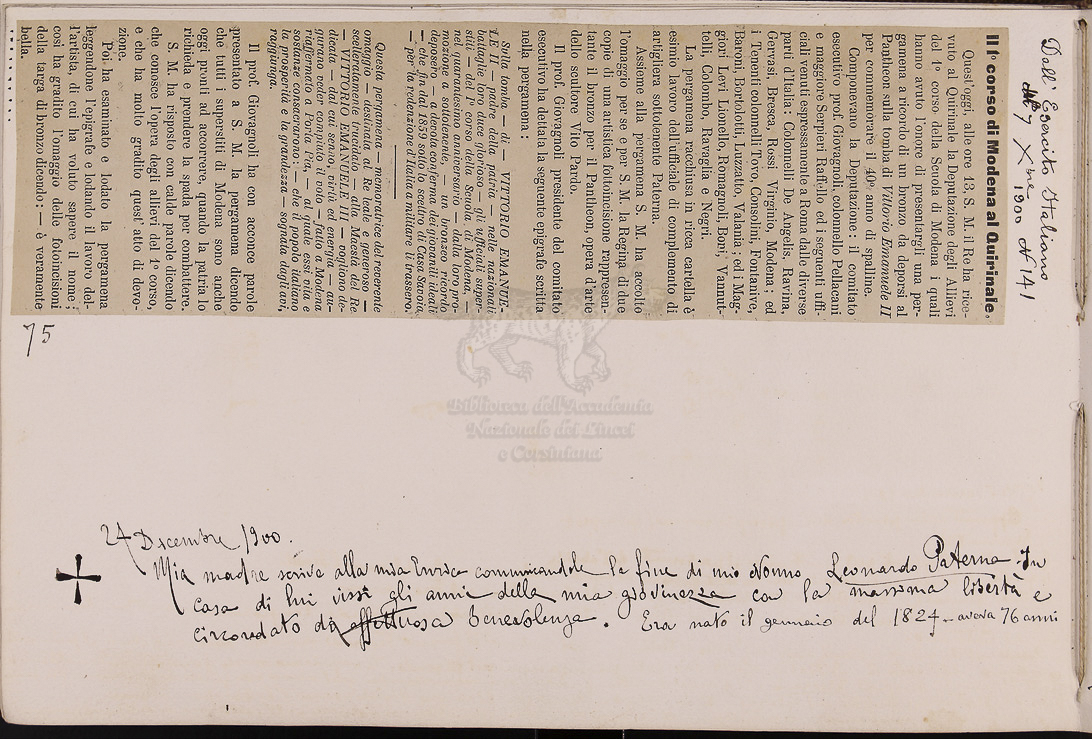 Dall' Esercito Italiano
Xbre
1900 N 141
Il 1º corso di Modena al Quirinale.
Quest'oggi, alle ore 13, S. M. il Re ha rice-
vuto al Quirinale la Deputazione degli Allievi
del 1º corso della Scuola di Modena i quali
hanno avuto l'onore di presentargli una per-
gamena a ricordo di un bronzo da deporsi al
Pantheon sulla tomba di Vittorio Emanuele II
per commemorare il 40º anno di spalline.
Componevano la Deputazione: il comitato
esecutivo prof. Giovagnoli, colonnello Pellacani
e maggiore Serpieri Raffello ed i seguenti uffi-
ciali venuti espressamente a Roma dalle diverse
parti d'Italia: Colonnelli De Angelis, Ravina,
Gervasi, Bresca, Rossi Virginio, Modena: ed
i Tenenti colonnelli Povo, Consolini, Fontanive,
Baroni, Bortolotti, Luzzatto, Valania; ed i Mag-
giori Levi Lionello, Romagnoli, Bori, Vannut-
telli, Colombo, Ravaglia e Negri.
La pergamena racchiusa in ricca cartella è
esimio lavoro dell'ufficiale di complemento di
artiglieria sottotenente Paterna.
Assieme alla pergamena S. M. ha accolto
l'omaggio per se e per S. M. la Regina di due
copie di una artistica fotoincisione rappresen-
tante il bronzo per il Pantheon, opera d'arte
dello scultore Vito Pardo.
Il prof. Giovagnoli presidente del comitato
esecutivo ha dettata la seguente epigrafe scritta
nella pergamena:
Sulla tomba — di VITTORIO EMANUE-
LE II — padre della patria — nelle nazionali
battaglie loro duce glorioso — gli ufficiali super-
stiti — del 1º corso della Scuola di Modena,
nel quarantesimo anniversario — dalla loro pro-
mozione a sottotenente, — un bronzeo ricordo
deposero — a devota conferma dei giovanili ideali
— che fino dal 1859 sotto lo scudo di Casa Savoia,
— per la redenzione d'Italia a militare li trassero.
Questa pergamena — memoratrice del reverente
omaggio — destinata al Re leale e generoso — di
scelleratamente trucidato — alla Maestà del Re
— VITTORIO EMANUELE III — vogliono de-
dicata — dal cui senno, virtù ed energia — au-
gurano veder compiuto il voto — fatto a Modena
— riaffermato a Roma, — al quale essi vita e
sostanze consacrarono: — che il popolo italiano
la prosperità e la grandezza sognata dagli avi,
raggiunga.
Il prof. Giovagnoli ha con acconce parole
presentato a S. M. la pergamena dicendo
che tutti i superstiti di Modena sono anche
oggi pronti ad accorrere, quando la patria lo
richieda e prendere la spada per combattere.
S. M. ha risposto con calde parole dicendo
che conosce l'opera degli allievi del 1º corso,
e che ha molto gradito quest'atto di devo-
zione.
Poi ha esaminato e lodato la pergamena
leggendone l'epigrafe e lodando il lavoro del-
l'artista, di cui ha voluto sapere il nome;
così ha gradito l'omaggio delle fotoincisioni
della targa di bronzo dicendo: — è veramente
bella.
75
Biblioteca dell'Accademia
Nazionale dei Lincei
e Corsiniana
24 Dicembre 1900.
Mia madre scrive alla mia Enrica comunicandole la fine di mio Nonno Leonardo Paterna. In
casa di lui vissi gli anni della mia giovinezza con la massima libertà e
circondato di affettuosa benevolenza. Era nato il gennaio del 1824 - aveva 76 anni